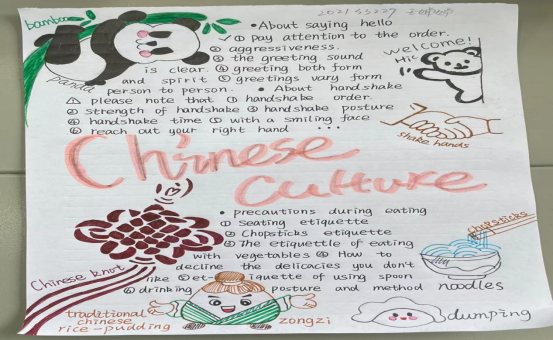 2021155227
bamboo
panda
•About saying hello
① pay attention to the order.
② aggressiveness.
③ the greeting sound
is clear. ④ greeting both form
and spirit ⑤ greetings vary form
person to person. • About handshake
please note that ① handshake order.
② strength of handshake ③ handshake posture
④ handshake time ⑤ with a smiling face
⑥ reach out your right hand ...
welcome!
Hi
shake hands
Chinese
Culture
• precautions during eating
① Seating etiquette
② Chopsticks etiquette
③ The etiquettle of eating
with vegetables ④ How to
decline the delicacies you don't
like ⑤ et-iquette of using spoon
⑥ drinking posture and method
Chinese knot
chopsticks
noodles
traditional
chinese
rice-pudding
zongzi
dumping